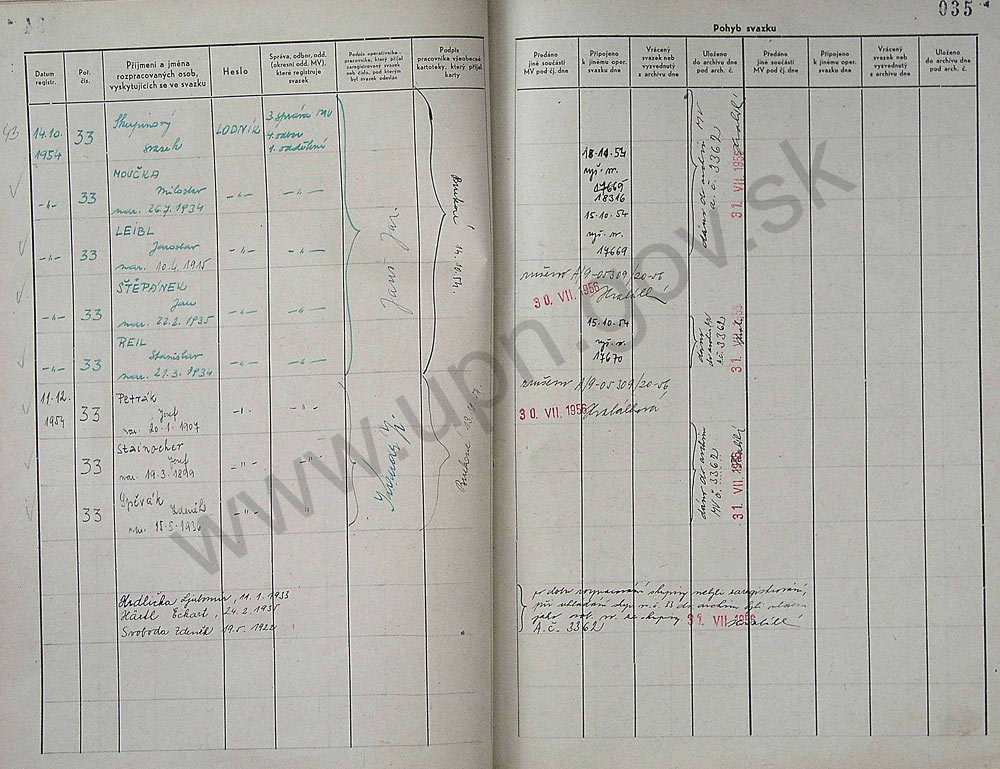 035
Pohyb svazku
Datum registr.
Poř. čís.
Příjmení a jména rozpracovaných osob, vyskytujících se ve svazku
Heslo
Správa, odbor, odd. (okresní odd. MV), které registruje svazek
Podpis operativního pracovníka, který přijal zaregistrovaný svazek neb číslo, pod kterým byl svazek odeslán
Podpis pracovníka všeobecné kartoteky, který přijal karty
Předáno jiné součásti MV pod čj. dne
Připojeno k jinému oper. svazku dne
Vrácený svazek neb vyzvednutý z archivu dne
Uloženo do archivu dne pod arch. č.
Předáno jiné součásti MV pod čj. dne
Připojeno k jinému oper. svazku dne
Vrácený svazek neb vyzvednutý z archivu dne
Uloženo do archivu dne pod arch. č.
43
14.10. 1954
33
Skupinový svazek
LODNÍK
3. správa MV
4. odbor
1. oddělení
33
MOUČKA
Miloslav
nar. 26.7. 1934
33
LEIBL
Jaroslav
nar. 10.4. 1915
33
ŠTĚPÁNEK
Jan
nar. 22.2. 1935
33
REIL
Stanislav
nar. 21.3. 1934
11.12. 1954
33
Petrák
Josef
nar. 20-1-1907
33
Stainocher
Josef
nar. 19-3-1899
33
Zpěvák
Zdeněk
nar. 15-5-1936
14.10.54.
18-11-54
17665
18316
15-10-54
17669
zrušeno A/9-05309/20-56
30. VII. 1956
15-10-54
17670
zrušeno A/9-05309/20-56
30. VII. 1956
dáno do archivu MV
a. č. 3362
31. VII. 1956
dáno
č. 3362
31. VII.
dáno do archivu
MV č. 3362
31. VII. 1956
Hrdlička Ljubomír, 11.1.1933
Härtl Eckart, 24.2.1935
Svoboda Zdeněk 19.5.1922
po dobu rozpracování skupiny nebyli zaregistrováni,
při ukládání skup. sv. č. 33 do archivu byli
jako osob. sv. ke skupiny 31. VII. 1956
A.č. 3362
www.upn.gov.sk